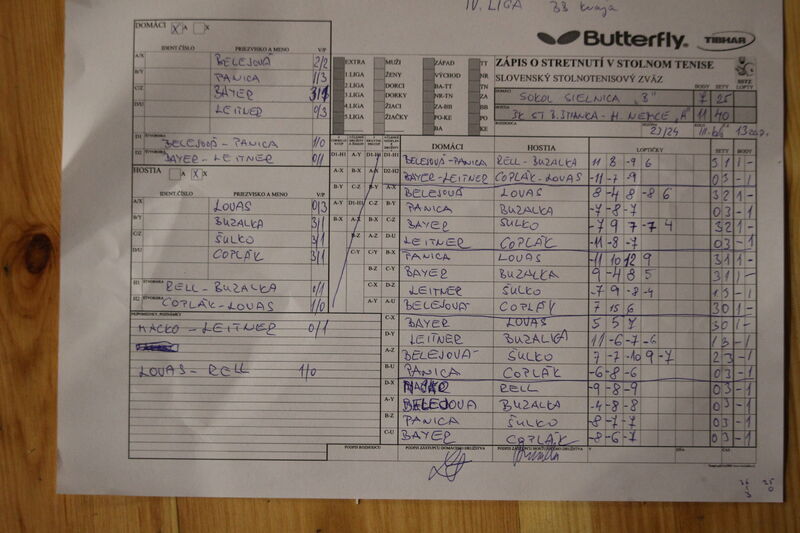 IV. LIGA BB kraja
DOMÁCI A X
Butterfly TIBHAR
IDENT.ČÍSLO PRIEZVISKO A MENO V/P
A/X BELEJOVÁ 2/2
B/Y PANICA 1/3
C/Z BAYER 3/1
D/U LEITNER 0/3
D1 ŠTVORHRA BELEJOVÁ - PANICA 1/0
D2 BAYER - LEITNER 0/1
HOSTIA A X
IDENT.ČÍSLO PRIEZVISKO A MENO V/P
A/X LOVAS 0/3
B/Y BUZALKA 3/1
C/Z ŠULKO 3/1
D/U COPLÁK 3/1
H1 ŠTVORHRA RELL - BUZALKA 0/1
H2 ŠTVORHRA COPLÁK - LOVAS 1/0
PRIPOMIENKY, POZNÁMKY
MACKO - LEITNER 0/1
LOVAS - RELL 1/0
EXTRA MUŽI ZÁPAD TT
1.LIGA ŽENY VÝCHOD NR
2.LIGA DORCI BA-TT TN
3.LIGA DORKY NR-TN ZA
4.LIGA ŽIACI ZA-BB BB
5.LIGA ŽIAČKY PO-KE PO
BA KE
ZÁPIS O STRETNUTÍ V STOLNOM TENISE
SLOVENSKÝ STOLNOTENISOVÝ ZVÄZ
DOMÁCI BODY SETY LOPTY
SOKOL SIELNICA "B" 7 25
HOSTIA H. NEMCE "A" 11 40
23/24
DOMÁCI HOSTIA LOPTIČKY SETY BODY
D1-H1 BELEJOVÁ-PANICA RELL - BUZALKA 11 8 -9 6 3 1 1 -
D2-H2 BAYER-LEITNER COPLÁK-LOVAS -11 -7 -9 0 3 - 1
A-X BELEJOVÁ LOVAS 8 -4 8 -8 6 3 2 1 -
B-Y PANICA BUZALKA -7 -8 -7 0 3 - 1
C-Z BAYER ŠULKO -7 9 7 -7 4 3 2 1 -
D-U LEITNER COPLÁK -11 -8 -7 0 3 - 1
B-X PANICA LOVAS -11 10 12 9 3 1 1 -
C-Y BAYER BUZALKA 9 -4 8 5 3 1 1 -
D-Z LEITNER ŠULKO -7 9 -8 -4 1 3 - 1
A-U BELEJOVÁ COPLÁK 7 15 6 3 0 1 -
C-X BAYER LOVAS 5 5 7 3 0 1 -
D-Y LEITNER BUZALKA 11 -6 -7 -6 1 3 - 1
A-Z BELEJOVÁ ŠULKO 7 -7 -10 9 -7 2 3 - 1
B-U PANICA COPLÁK -6 -8 -6 0 3 - 1
D-X RELL -9 -8 -9 0 3 - 1
A-Y BELEJOVÁ BUZALKA -4 -8 -8 0 3 - 1
B-Z PANICA ŠULKO -8 -7 -7 0 3 - 1
C-U BAYER COPLÁK -8 -6 -7 0 3 - 1
PODPIS ROZHODCU PODPIS ZÁSTUPCU DOMÁCEHO DRUŽSTVA PODPIS ZÁSTUPCU HOSŤUJÚCEHO DRUŽSTVA V DŇA ČAS